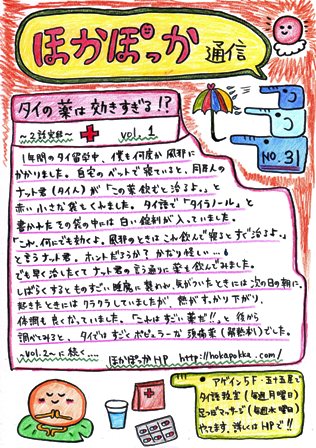 ほかぽっか通信
タイの薬は効きすぎる!?
～2話完結～ vol.1
NO.31
1年間のタイ留学中、僕も何度か風邪に
かかりました。自宅のベットで寝ていると、同居人の
ナット君(タイ人)が「この薬飲むと治るよ。」と
赤い小さな袋をくれました。タイ語で「タイラノール」と
書かれたその袋の中には白い錠剤が入っていました。
「これ、何にでも効くよ。風邪のときはこれ飲んで寝るとすぐ治るよ。」
と言うナット君。ホントだろうか?かなり怪しい…。
でも早く治したくてナット君の言う通りに薬を飲んでみました。
しばらくするとものすごい睡魔に襲われ、気がついたときには次の日の朝に。
起きたときにはクラクラしていましたが、熱がすっかり下がり、
体調も良くなっていました。「これはすごい薬だ!!」と後から
調べてみると、タイではすごくポピュラーな頭痛薬(解熱剤)でした。
～vol.2～に続く…
ほかぽっかHP http://hokapokka.com/
アゲイン5F・五十五屋で
タイ語教室(毎週月曜日)
足つぼマッサージ(毎週水曜日)
やってます。詳しくはHPで!!